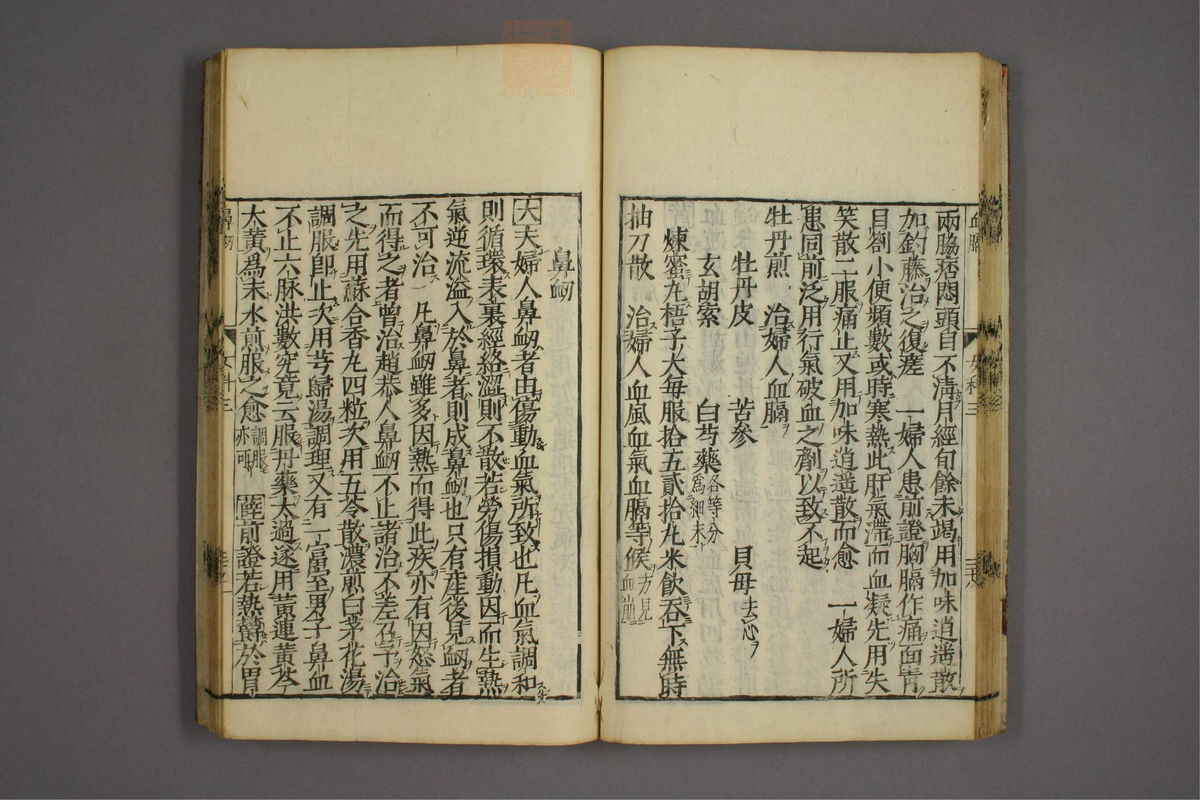 兩脇痞悶頭目不清月經旬餘未竭用加味逍遥散
加鈎藤治之復瘥　一婦人患前證胸膈作痛面青
目劄小便頻數或時寒熱此肝氣滯而血凝先用失
笑散二服痛止又用加味逍遥散而愈　一婦人所
患同前泛用行氣破血之劑以致不起
牡丹煎　治婦人血膈
牡丹皮　苦參　貝母去心
玄胡索　白芍藥各等分爲細末
煉蜜丸梧子大毎服拾五貳拾丸米飲吞下無時
抽刀散　治婦人血風血氣血膈等候方見血崩
鼻衂
大夫婦人鼻衂者由傷動血氣所致也凡血氣調和
則循環表裏經絡澀則不散若勞傷損動因而生熱
氣逆流溢入於鼻者則成鼻衂也只有産後見衂者
不可治　凡鼻衂雖多因熱而得此疾亦有因怒氣
而得之者曾治趙恭人鼻衂不止諸治不差召予治
之先用蘇合香丸四粒次用五苓散濃煎白茅花湯
調服即止次用芎歸湯調理又有一富室男子鼻血
不止六脉洪數究竟云服丹藥太過遂用黄連黄芩
大黄爲末水煎服之愈調服亦可　薛前證若熱鬱於胃
女科三
女科三